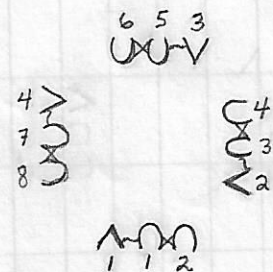 6 5 3
4
7
8
4
3
2
1 1 2